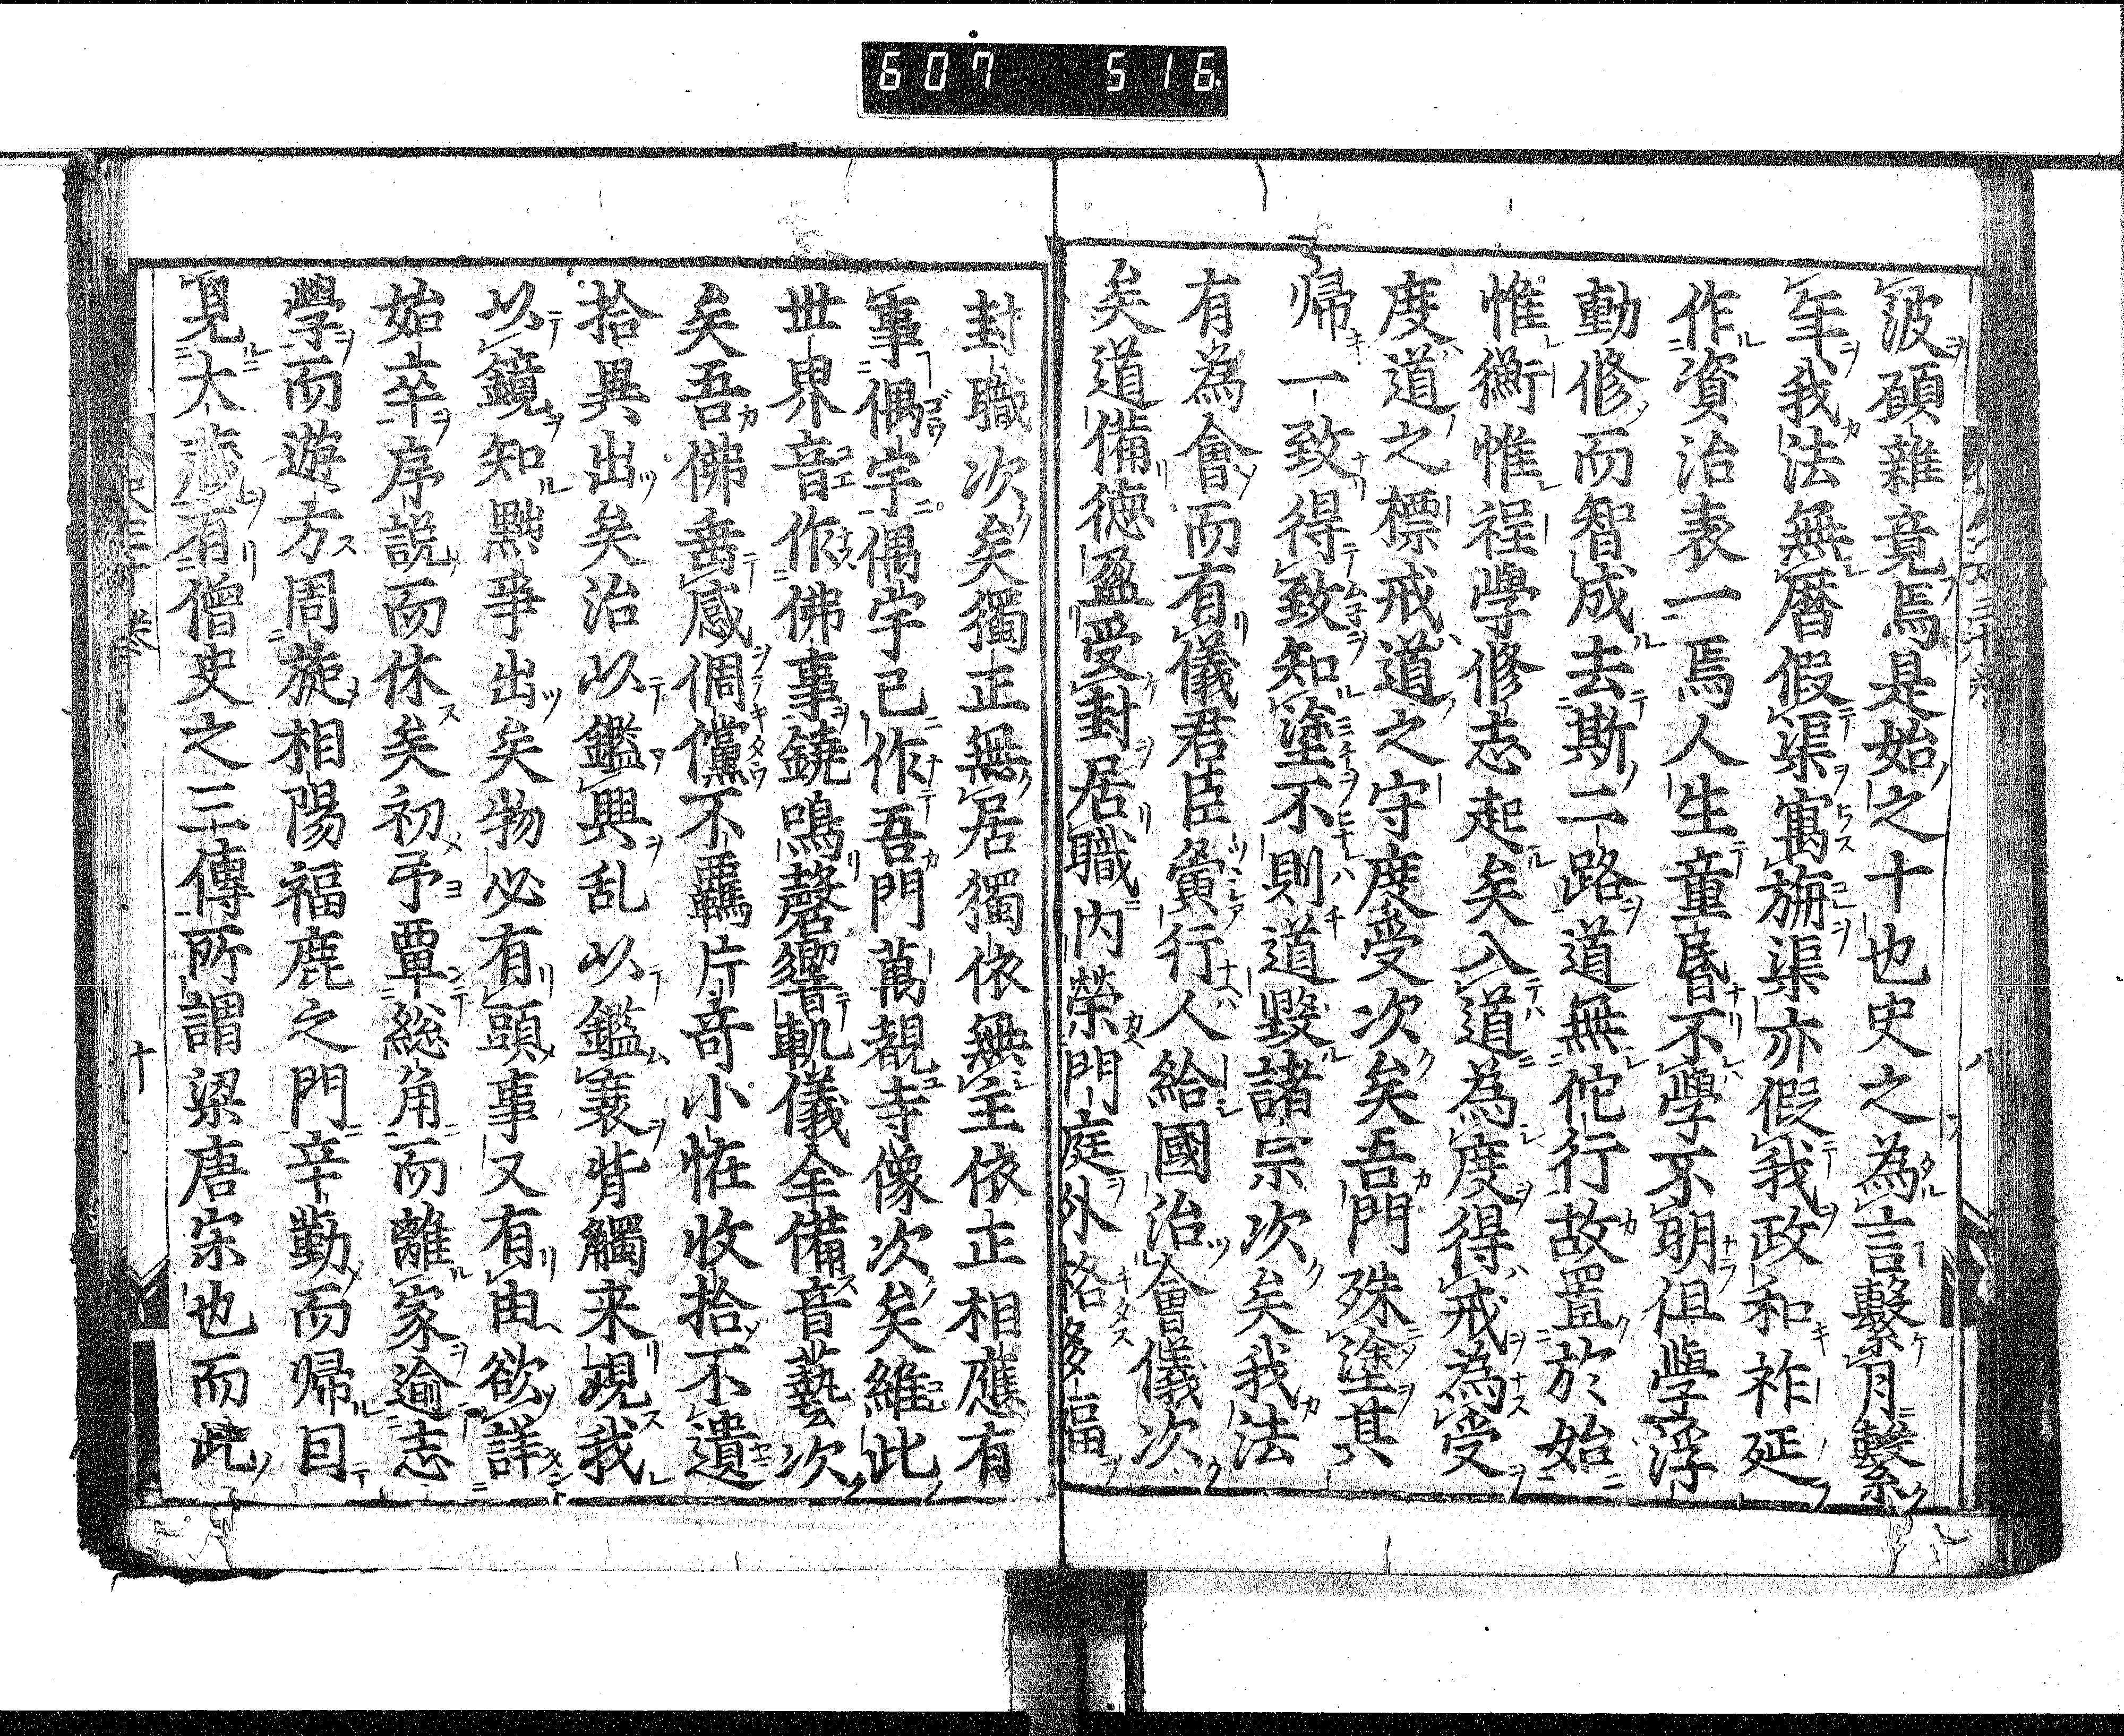 607 516
波碩雜竟焉是始之十也史之為言繫月繫
年我法無曆假渠寓旃渠亦假我政和祚延
作資治表一焉人生童昏不學不明但學浮
動修而智成去斯二路道無佗行故置於始
惟衡惟裎學修志起矣入道為度得戒為受
度道之標戒道之守度受次矣吾門殊塗其
帰一致得致知塗不則道毀諸宗次矣我法
有為會而有儀君臣夤行人給國治會儀次
矣道備德盈受封居職內榮門庭外格
封職次矣獨正無居獨依無主依正相應有
事偶字偶字己作吾門萬覩寺像次矣維此
世界音作佛事鐃鳴磬響軌儀全備音藝次
矣吾佛垂感倜儻不羈片奇小恠收拾不遺
拾異出矣治以鑑興乱以鑑衰背觸来現我
以鏡知點爭出矣物必有頭事又有由欲詳
始卒序説而休矣初予覃総角而離家逾志
學而遊方周旋相陽福鹿之門辛勤而帰目
見大藏有僧史之三傳所謂梁唐宋也而此
十